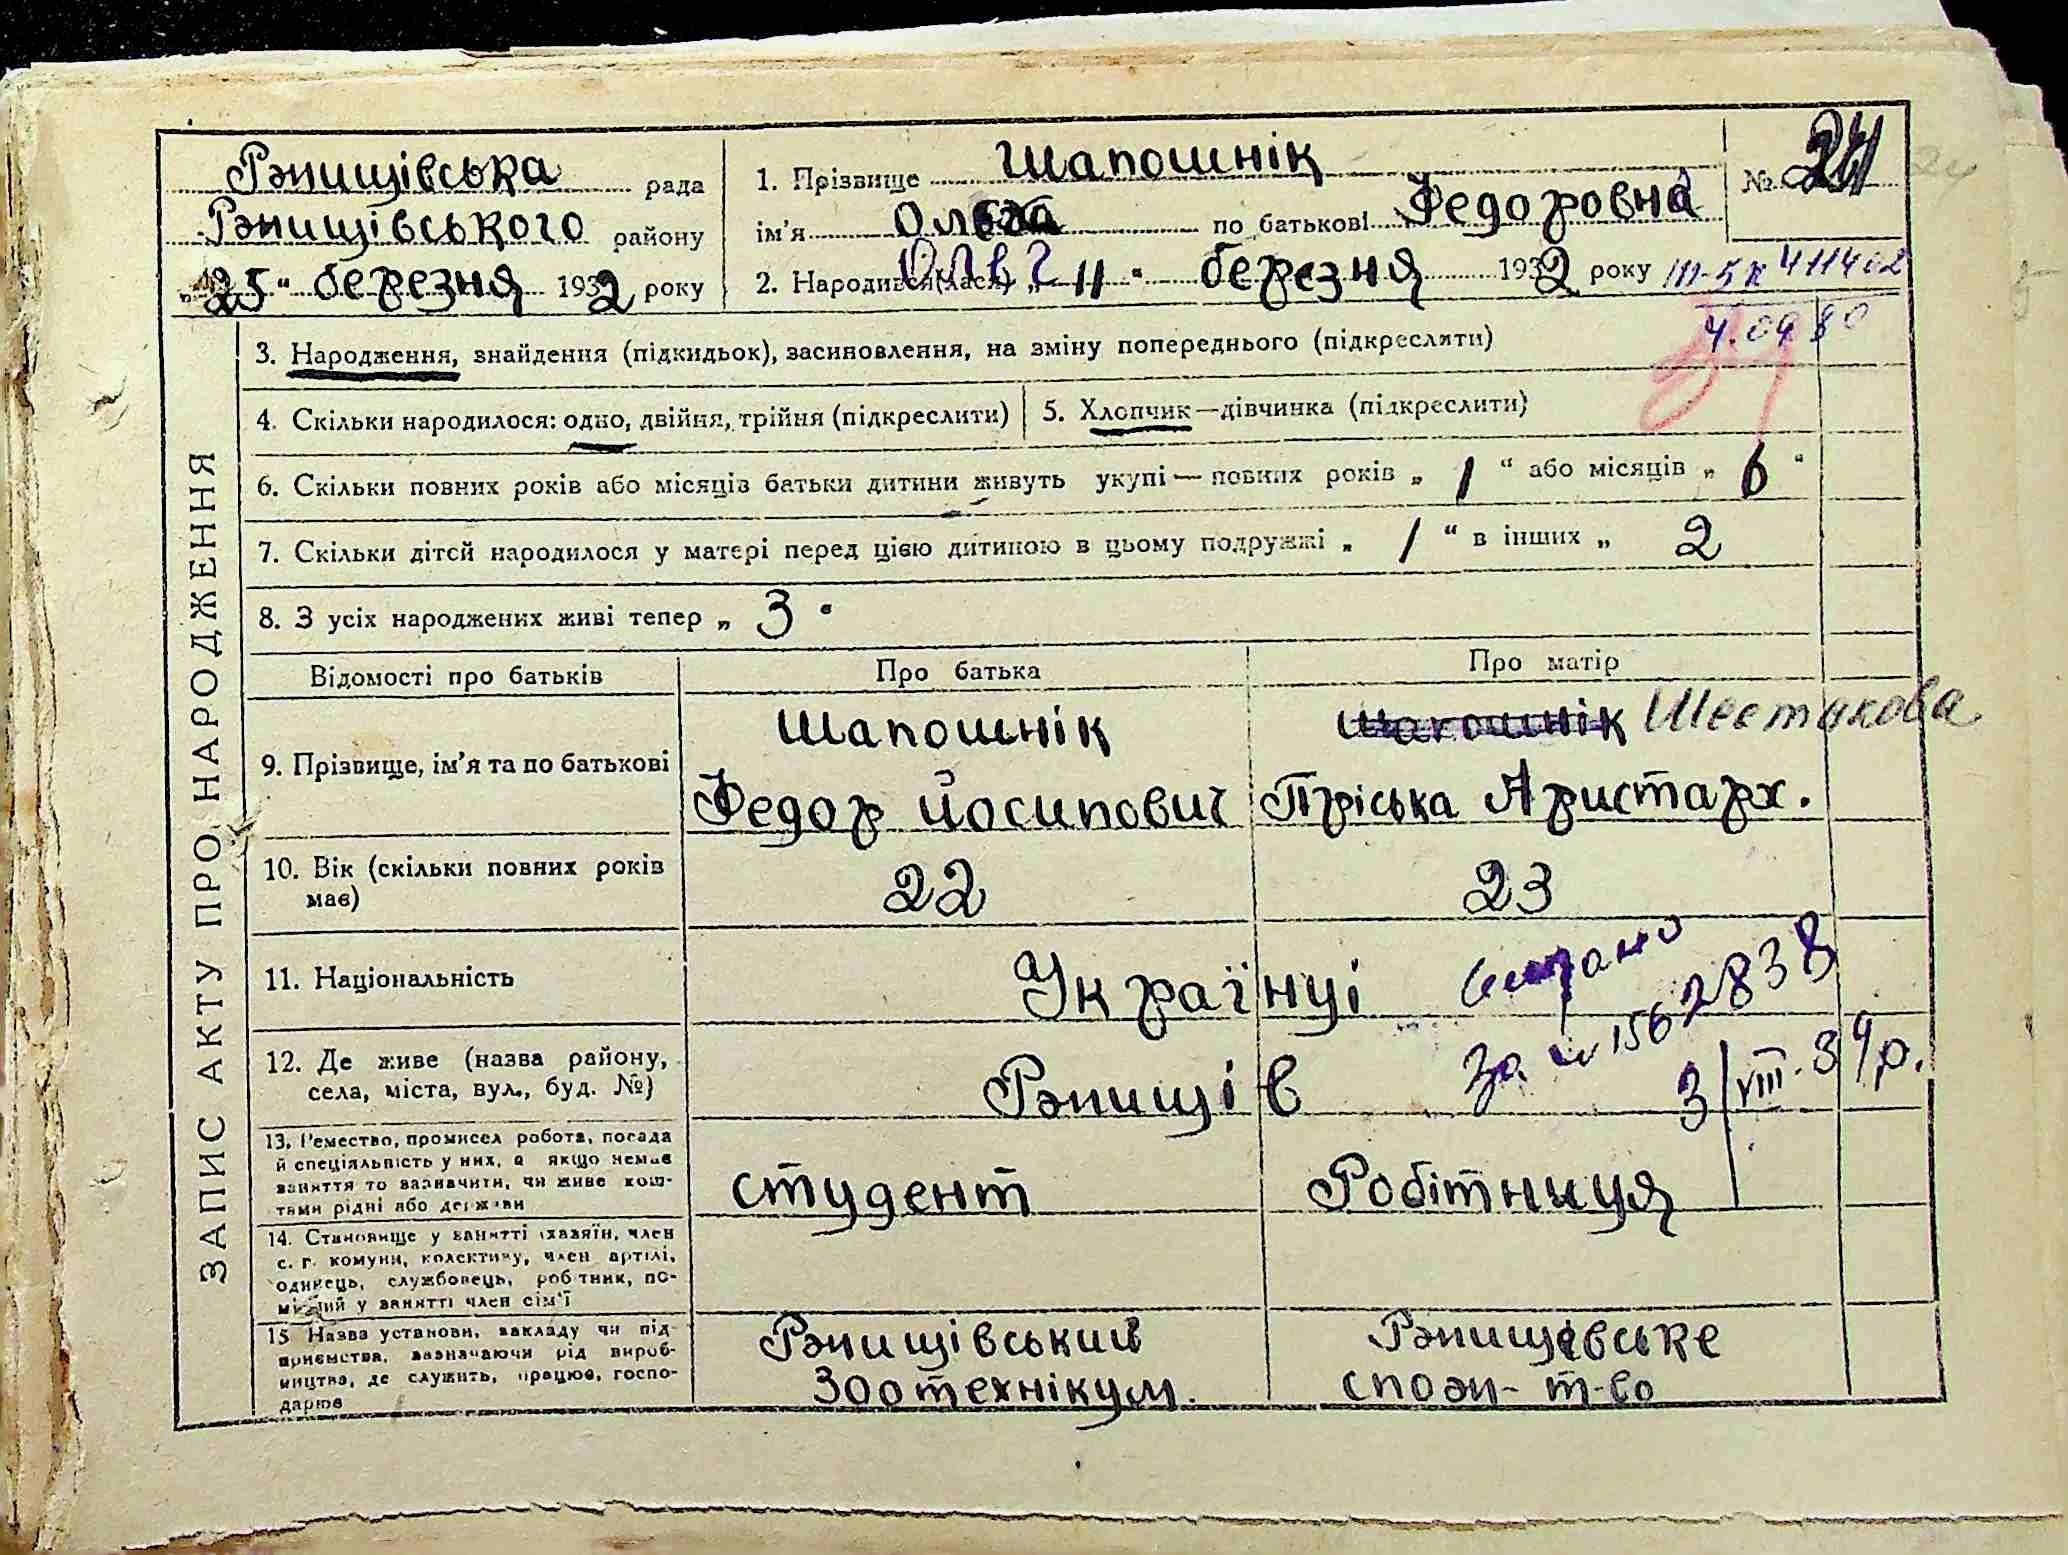 Ржищівська рада
Ржищівського району
"25" березня 1932 року
1. Прізвище Шапошнік
ім'я Ольга по батькові Федоровна
№ 24
Ольга
2. Народився(лася) „11" березня 1932 року
III-5к 411402
4.09 80
ЗАПИС АКТУ ПРО НАРОДЖЕННЯ
3. Народження, знайдення (підкидьок), засиновлення, на зміну попереднього (підкреслити)
4. Скільки народилося: одно, двійня, трійня (підкреслити)
5. Хлопчик—дівчинка (підкреслити)
6. Скільки повних років або місяців батьки дитини живуть укупі — повних років „ 1 " або місяців „ 6 "
7. Скільки дітей народилося у матері перед цією дитиною в цьому подружжі „ 1 " в інших „ 2
8. З усіх народжених живі тепер „ 3 "
Відомості про батьків
Про батька
Про матір
9. Прізвище, ім'я та по батькові
Шапошнік
Федор Йосипович
Шапошнік Шестакова
Пріська Аристарх.
10. Вік (скільки повних років
має)
22
23
11. Національність
Українці
12. Де живе (назва району,
села, міста, вул., буд. №)
Ржищів
За № 1562838
3/VIII-39р.
13. Ремество, промисел робота, посада
й спеціяльність у них, а якщо немає
заняття то зазначити, чи живе кош-
тами рідні або держави
студент
Робітниця
14. Становище у занятті (хазяїн, член
с. г. комуни, колективу, член артілі,
одинець, службовець, робітник, по-
мічний у занятті член сім'ї
15 Назва установи, закладу чи під-
приємства, зазначаючи рід вироб-
ництва, де служить, працює, госпо-
дарює
Ржищівський
Зоотехнікум.
Ржищівське
спож- т-во